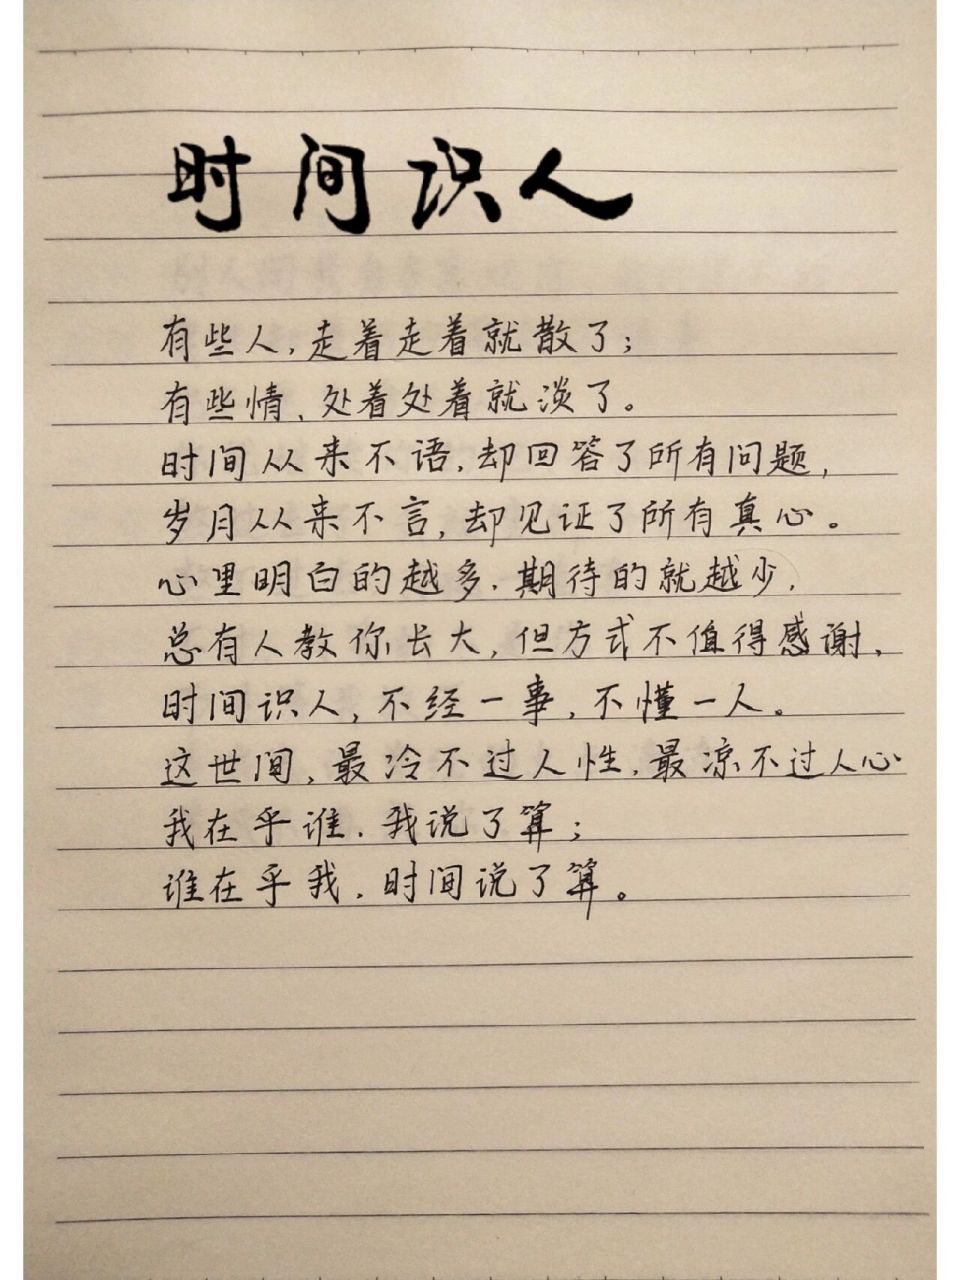 时间识人
有些人,走着走着就散了;
有些情,处着处着就淡了。
时间从来不语,却回答了所有问题,
岁月从来不言,却见证了所有真心。
心里明白的越多,期待的就越少,
总有人教你长大,但方式不值得感谢,
时间识人,不经一事,不懂一人。
这世间,最冷不过人性,最凉不过人心
我在乎谁,我说了算;
谁在乎我,时间说了算。